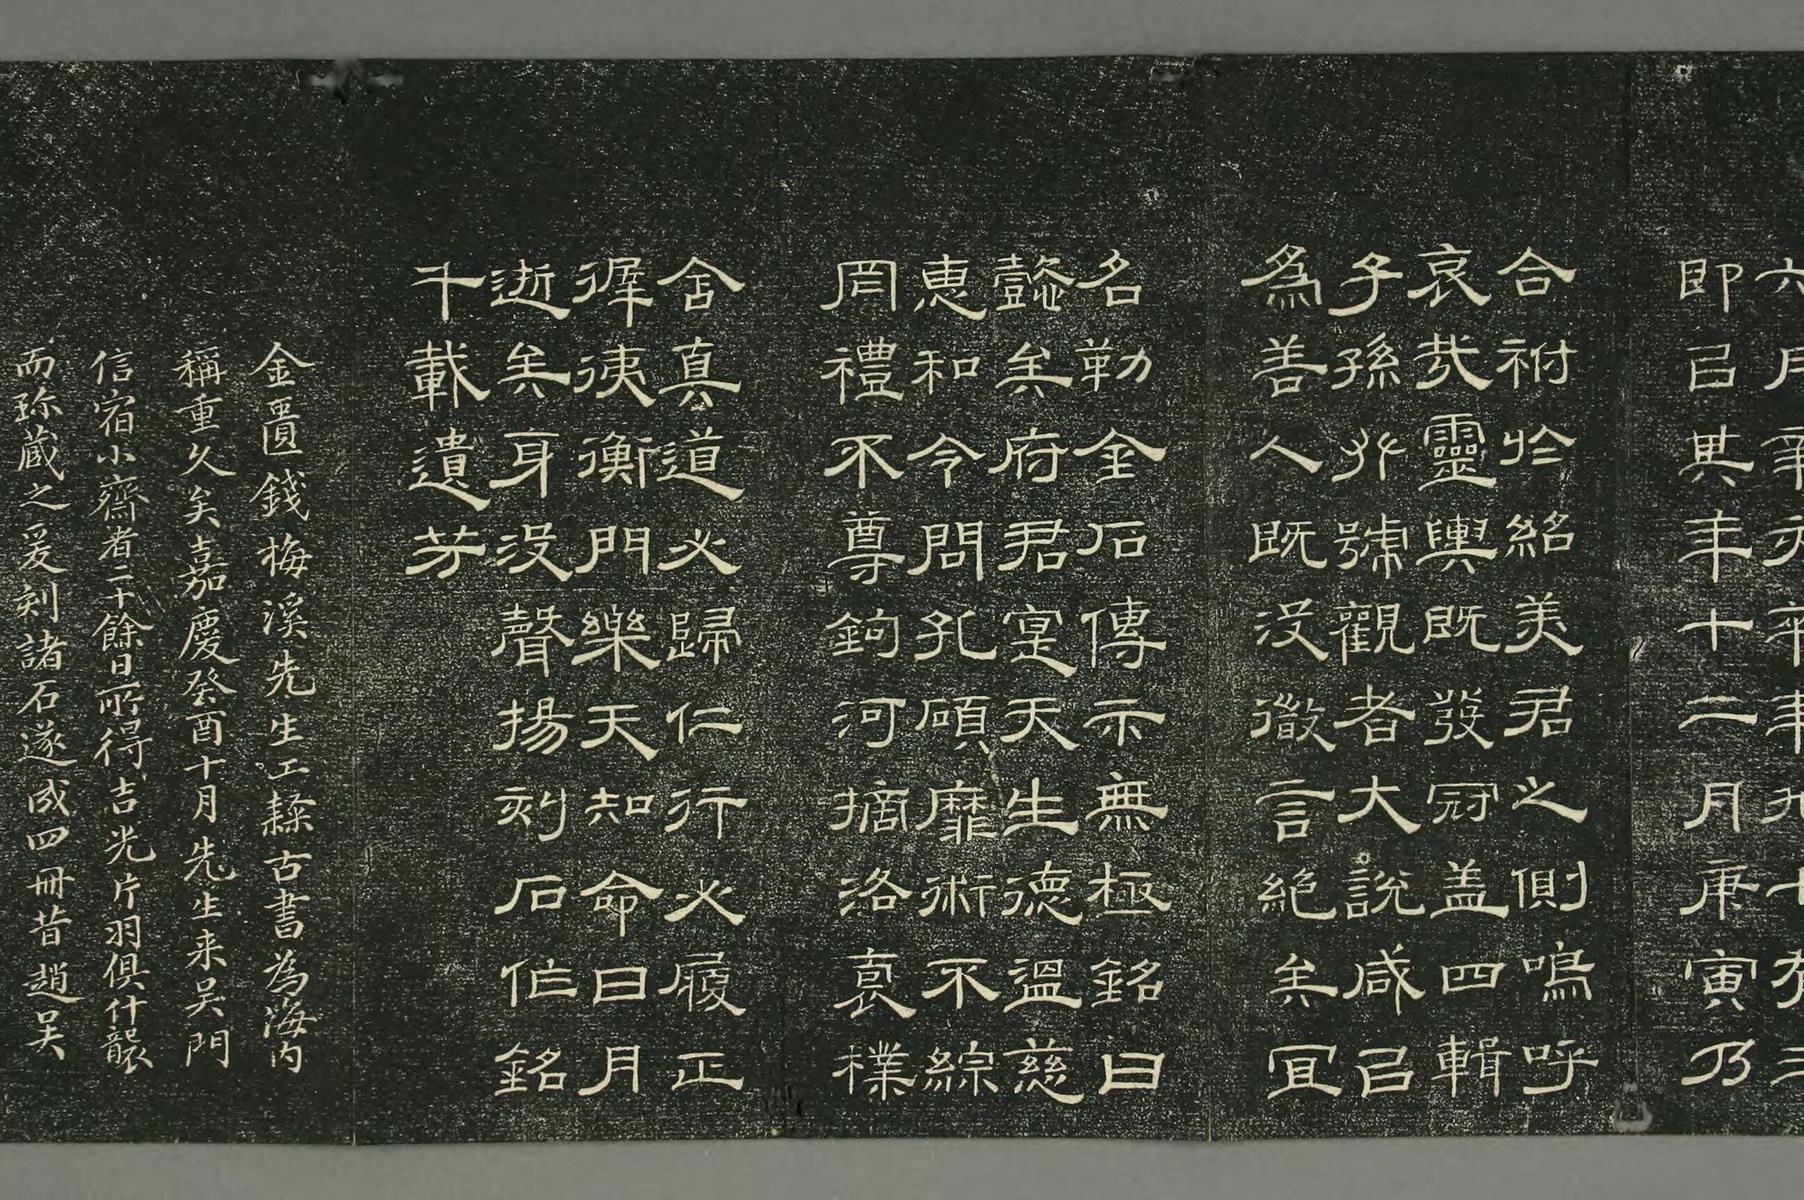 六月辛亥年九十有三
即㠯其年十二月庚寅乃
合祔於紹美君之側嗚呼
哀哉靈輿既發冠盖四輯
子孫號觀者大說咸㠯
為善人既没徽言絕矣宜
名勒金石傳示無極銘曰
懿矣府君寔天生德溫慈
惠和令問孔碩靡術不綜
罔禮不尊鉤河摘洛裒樸
舍真道必歸仁行必履正
徲衡門樂天知命日月
逝矣身没聲揚刻石作銘
千載遺芳
金匱錢梅溪先生工隸古書為海内
稱重久矣嘉慶癸酉十月先生来吴門
信宿小齋者二十餘日所得吉光片羽俱什襲
而珎藏之爰刻諸石遂成四冊昔趙吴